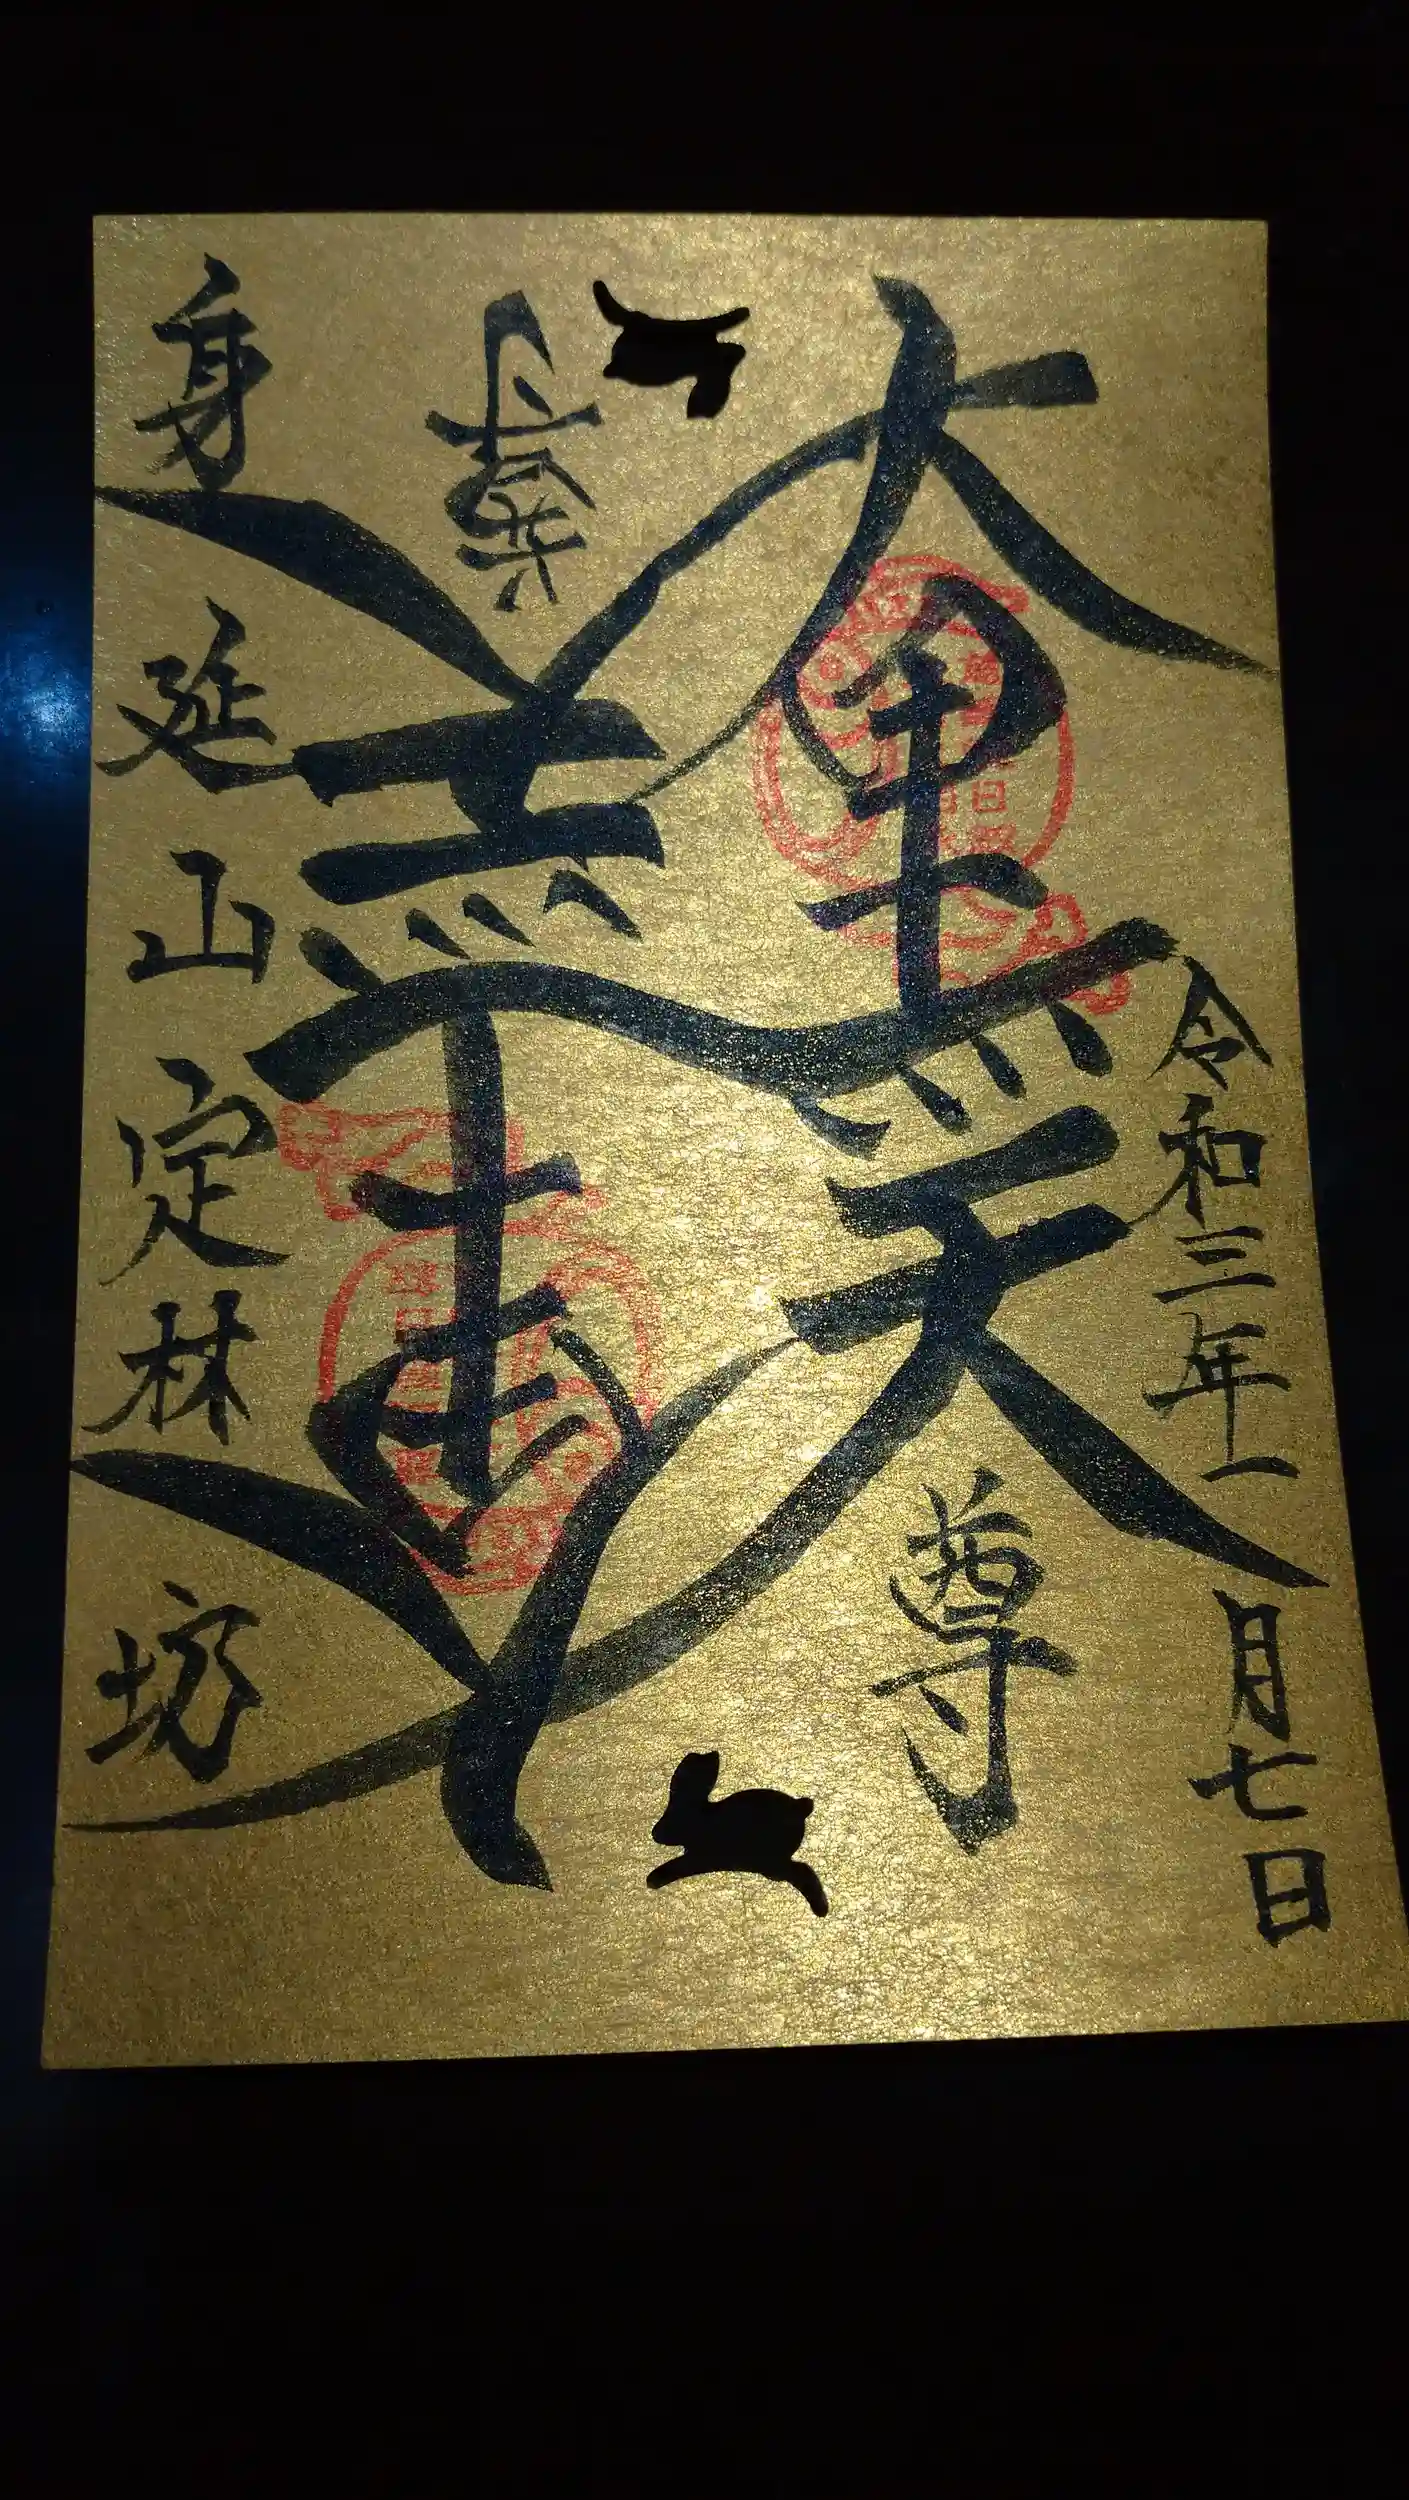 令和三年一月七日
大黒天
尊
大黒天
尊
身延山定林坊